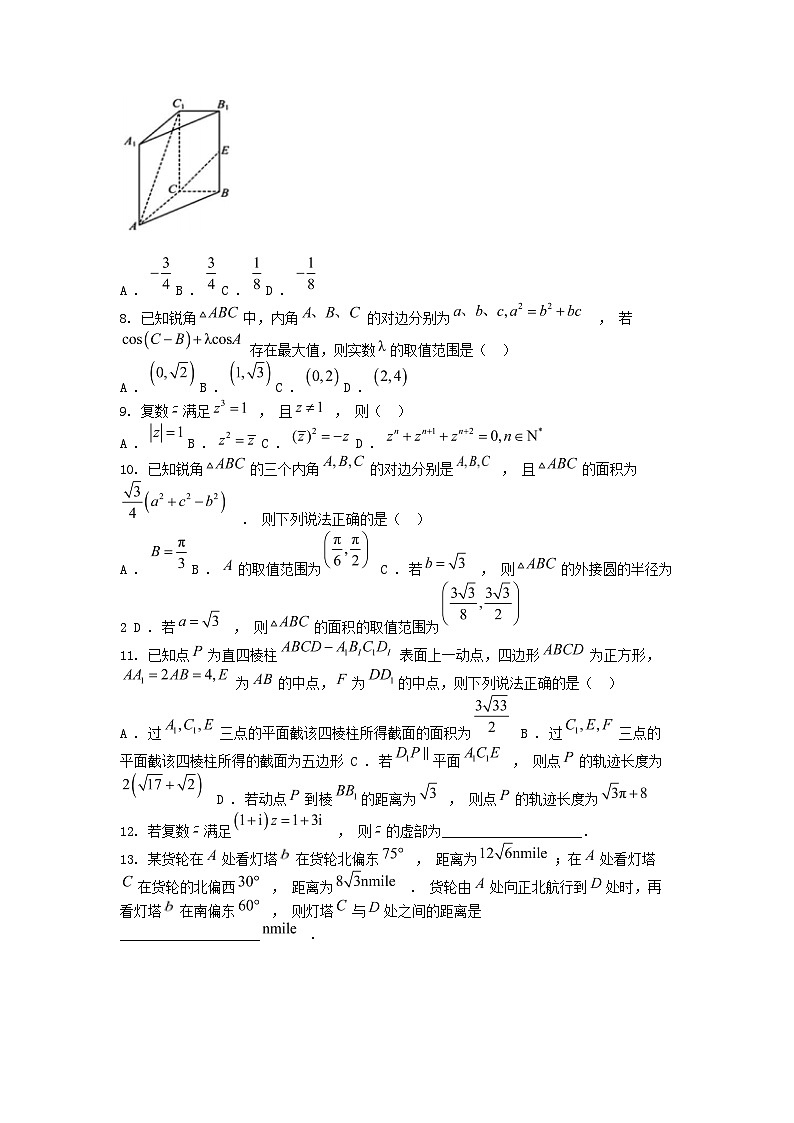 C₁ B₁
A₁
E
C B
A
A . $-\frac{3}{4}$ B . $\frac{3}{4}$ C . $\frac{1}{8}$ D . $-\frac{1}{8}$
8. 已知锐角 $\triangle ABC$ 中，内角 $A、B、C$ 的对边分别为 $a、b、c, a^2=b^2+bc$ ， 若
$\cos(C-B)+\lambda\cos A$ 存在最大值，则实数 $\lambda$ 的取值范围是（ ）
A . $(0,\sqrt{2})$ B . $(1,\sqrt{3})$ C . $(0,2)$ D . $(2,4)$
9. 复数 $z$ 满足 $z^3=1$ ， 且 $z\neq 1$ ， 则（ ）
A . $|z|=1$ B . $z^2=\overline{z}$ C . $(\overline{z})^2=-z$ D . $z^n+z^{n+1}+z^{n+2}=0,n\in\mathrm{N}^*$
10. 已知锐角 $\triangle ABC$ 的三个内角 $A,B,C$ 的对边分别是 $A,B,C$ ， 且 $\triangle ABC$ 的面积为
$\frac{\sqrt{3}}{4}(a^2+c^2-b^2)$ . 则下列说法正确的是（ ）
A . $B=\frac{\pi}{3}$ B . $A$ 的取值范围为 $\left(\frac{\pi}{6},\frac{\pi}{2}\right)$ C . 若 $b=\sqrt{3}$ ， 则 $\triangle ABC$ 的外接圆的半径为
2 D . 若 $a=\sqrt{3}$ ， 则 $\triangle ABC$ 的面积的取值范围为 $\left(\frac{3\sqrt{3}}{8},\frac{3\sqrt{3}}{2}\right)$
11. 已知点 $P$ 为直四棱柱 $ABCD-A_1B_1C_1D_1$ 表面上一动点，四边形 $ABCD$ 为正方形，
$AA_1=2AB=4,E$ 为 $AB$ 的中点，$F$ 为 $DD_1$ 的中点，则下列说法正确的是（ ）
A . 过 $A_1,C_1,E$ 三点的平面截该四棱柱所得截面的面积为 $\frac{3\sqrt{33}}{2}$ B . 过 $C_1,E,F$ 三点的
平面截该四棱柱所得的截面为五边形 C . 若 $D_1P\parallel$ 平面 $A_1C_1E$ ， 则点 $P$ 的轨迹长度为
$2(\sqrt{17}+\sqrt{2})$ D . 若动点 $P$ 到棱 $BB_1$ 的距离为 $\sqrt{3}$ ， 则点 $P$ 的轨迹长度为 $\sqrt{3}\pi+8$
12. 若复数 $z$ 满足 $(1+\mathrm{i})z=1+3\mathrm{i}$ ， 则 $z$ 的虚部为____________________.
13. 某货轮在 $A$ 处看灯塔 $b$ 在货轮北偏东 $75°$ ， 距离为 $12\sqrt{6}\mathrm{nmile}$ ；在 $A$ 处看灯塔
$C$ 在货轮的北偏西 $30°$ ， 距离为 $8\sqrt{3}\mathrm{nmile}$ . 货轮由 $A$ 处向正北航行到 $D$ 处时，再
看灯塔 $b$ 在南偏东 $60°$ ， 则灯塔 $C$ 与 $D$ 处之间的距离是
____________________ $\mathrm{nmile}$ .